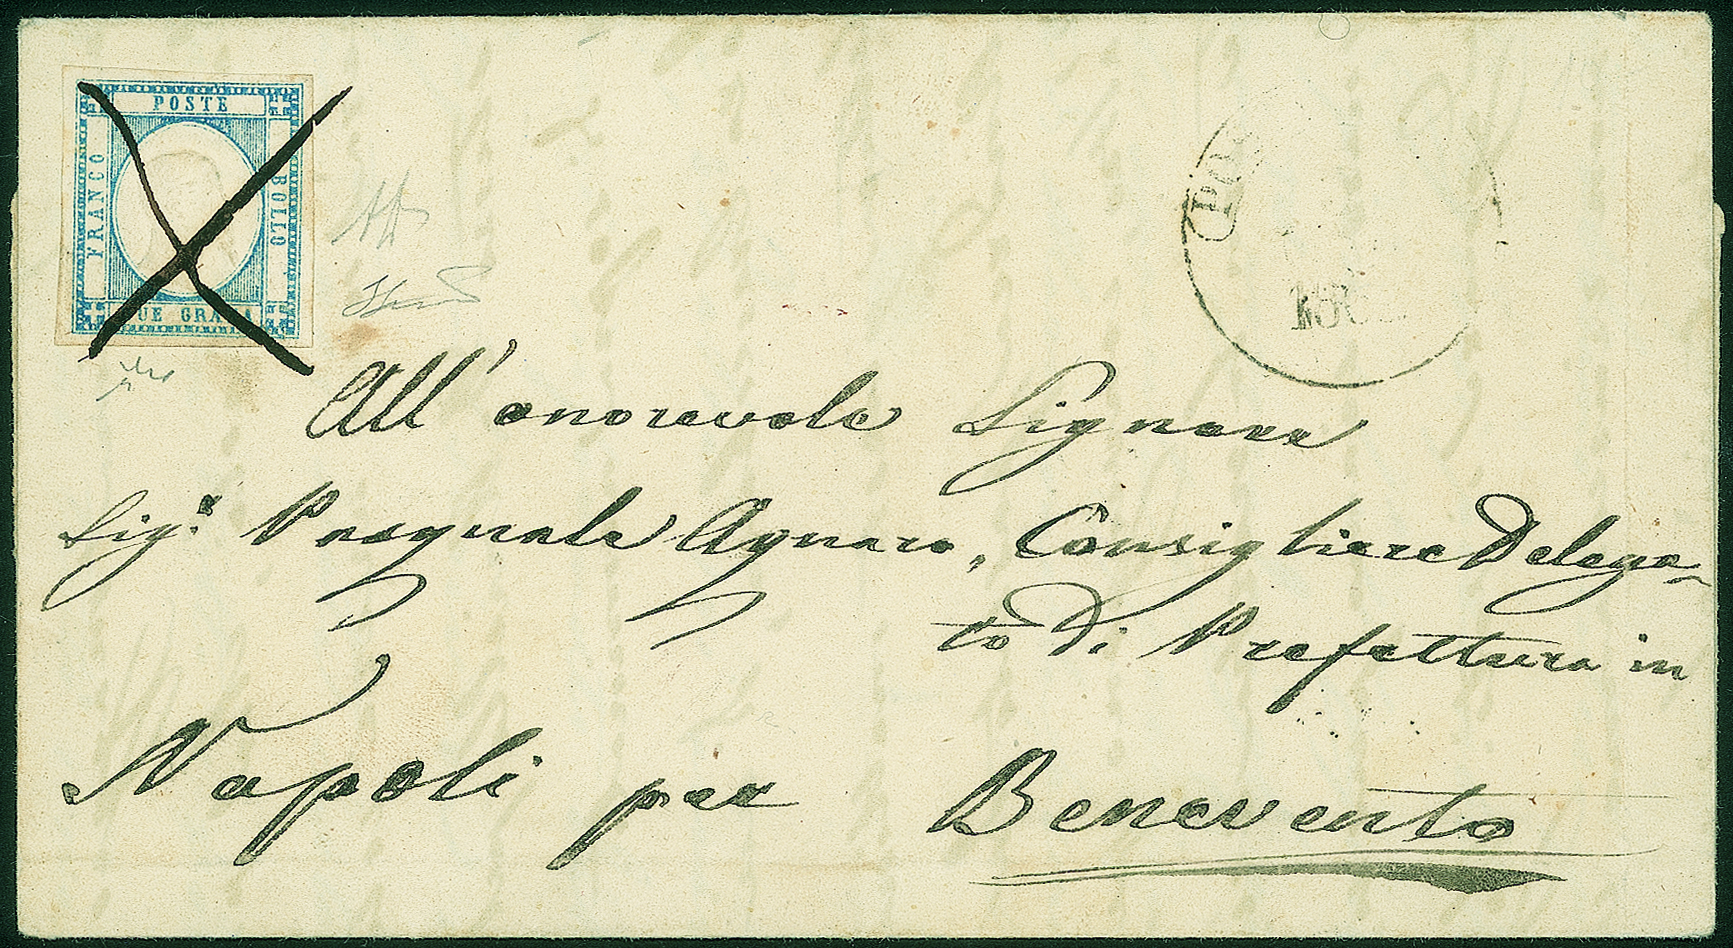 POSTE
FRANCO
BOLLO
All' onorevole Signore
Sig.r Pasquale Agnaro, Consigliere Delega-
to di Prefettura in
Napoli per Benevento